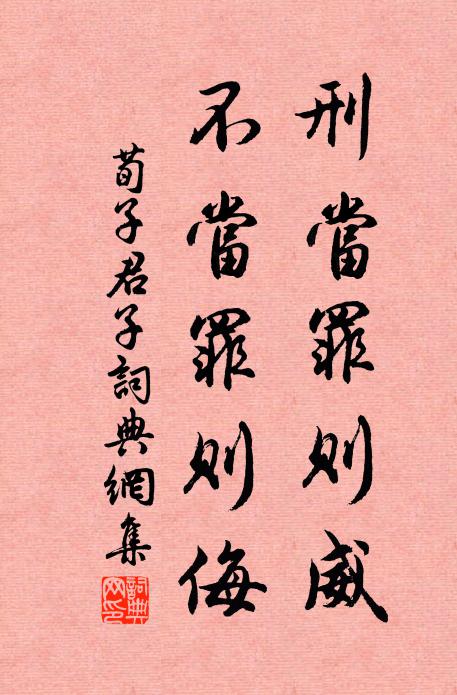 刑當罪則威
不當罪則侮
荀子君子詞典網集
詞典网印